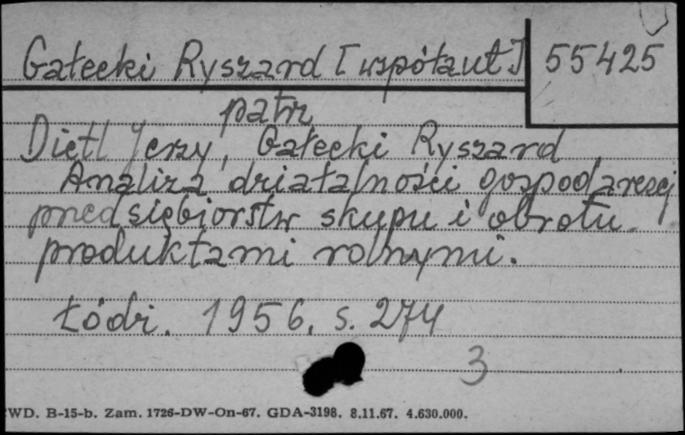 Gałecki Ryszard [współaut] 55425
patrz
Dietl Jerzy, Gałecki Ryszard
Analiza działalności gospodarczej
przedsiębiorstw skupu i obrotu
produktami rolnymi.
Łódź. 1956. s. 274
3
WD. B-15-b. Zam. 1726-DW-On-67. GDA-3198. 8.11.67. 4.630.000.